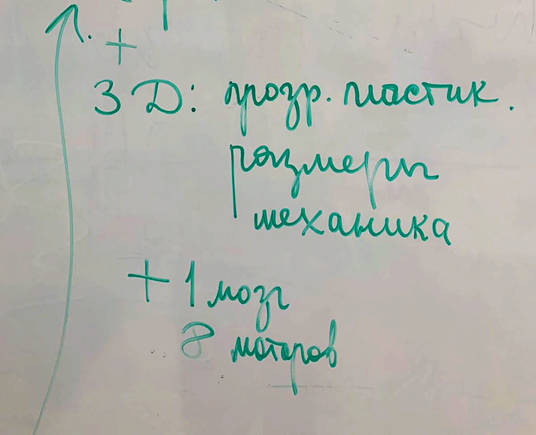 +
3D: прозр. пластик.
размеры
механика
+ 1 мозг
8 моторов